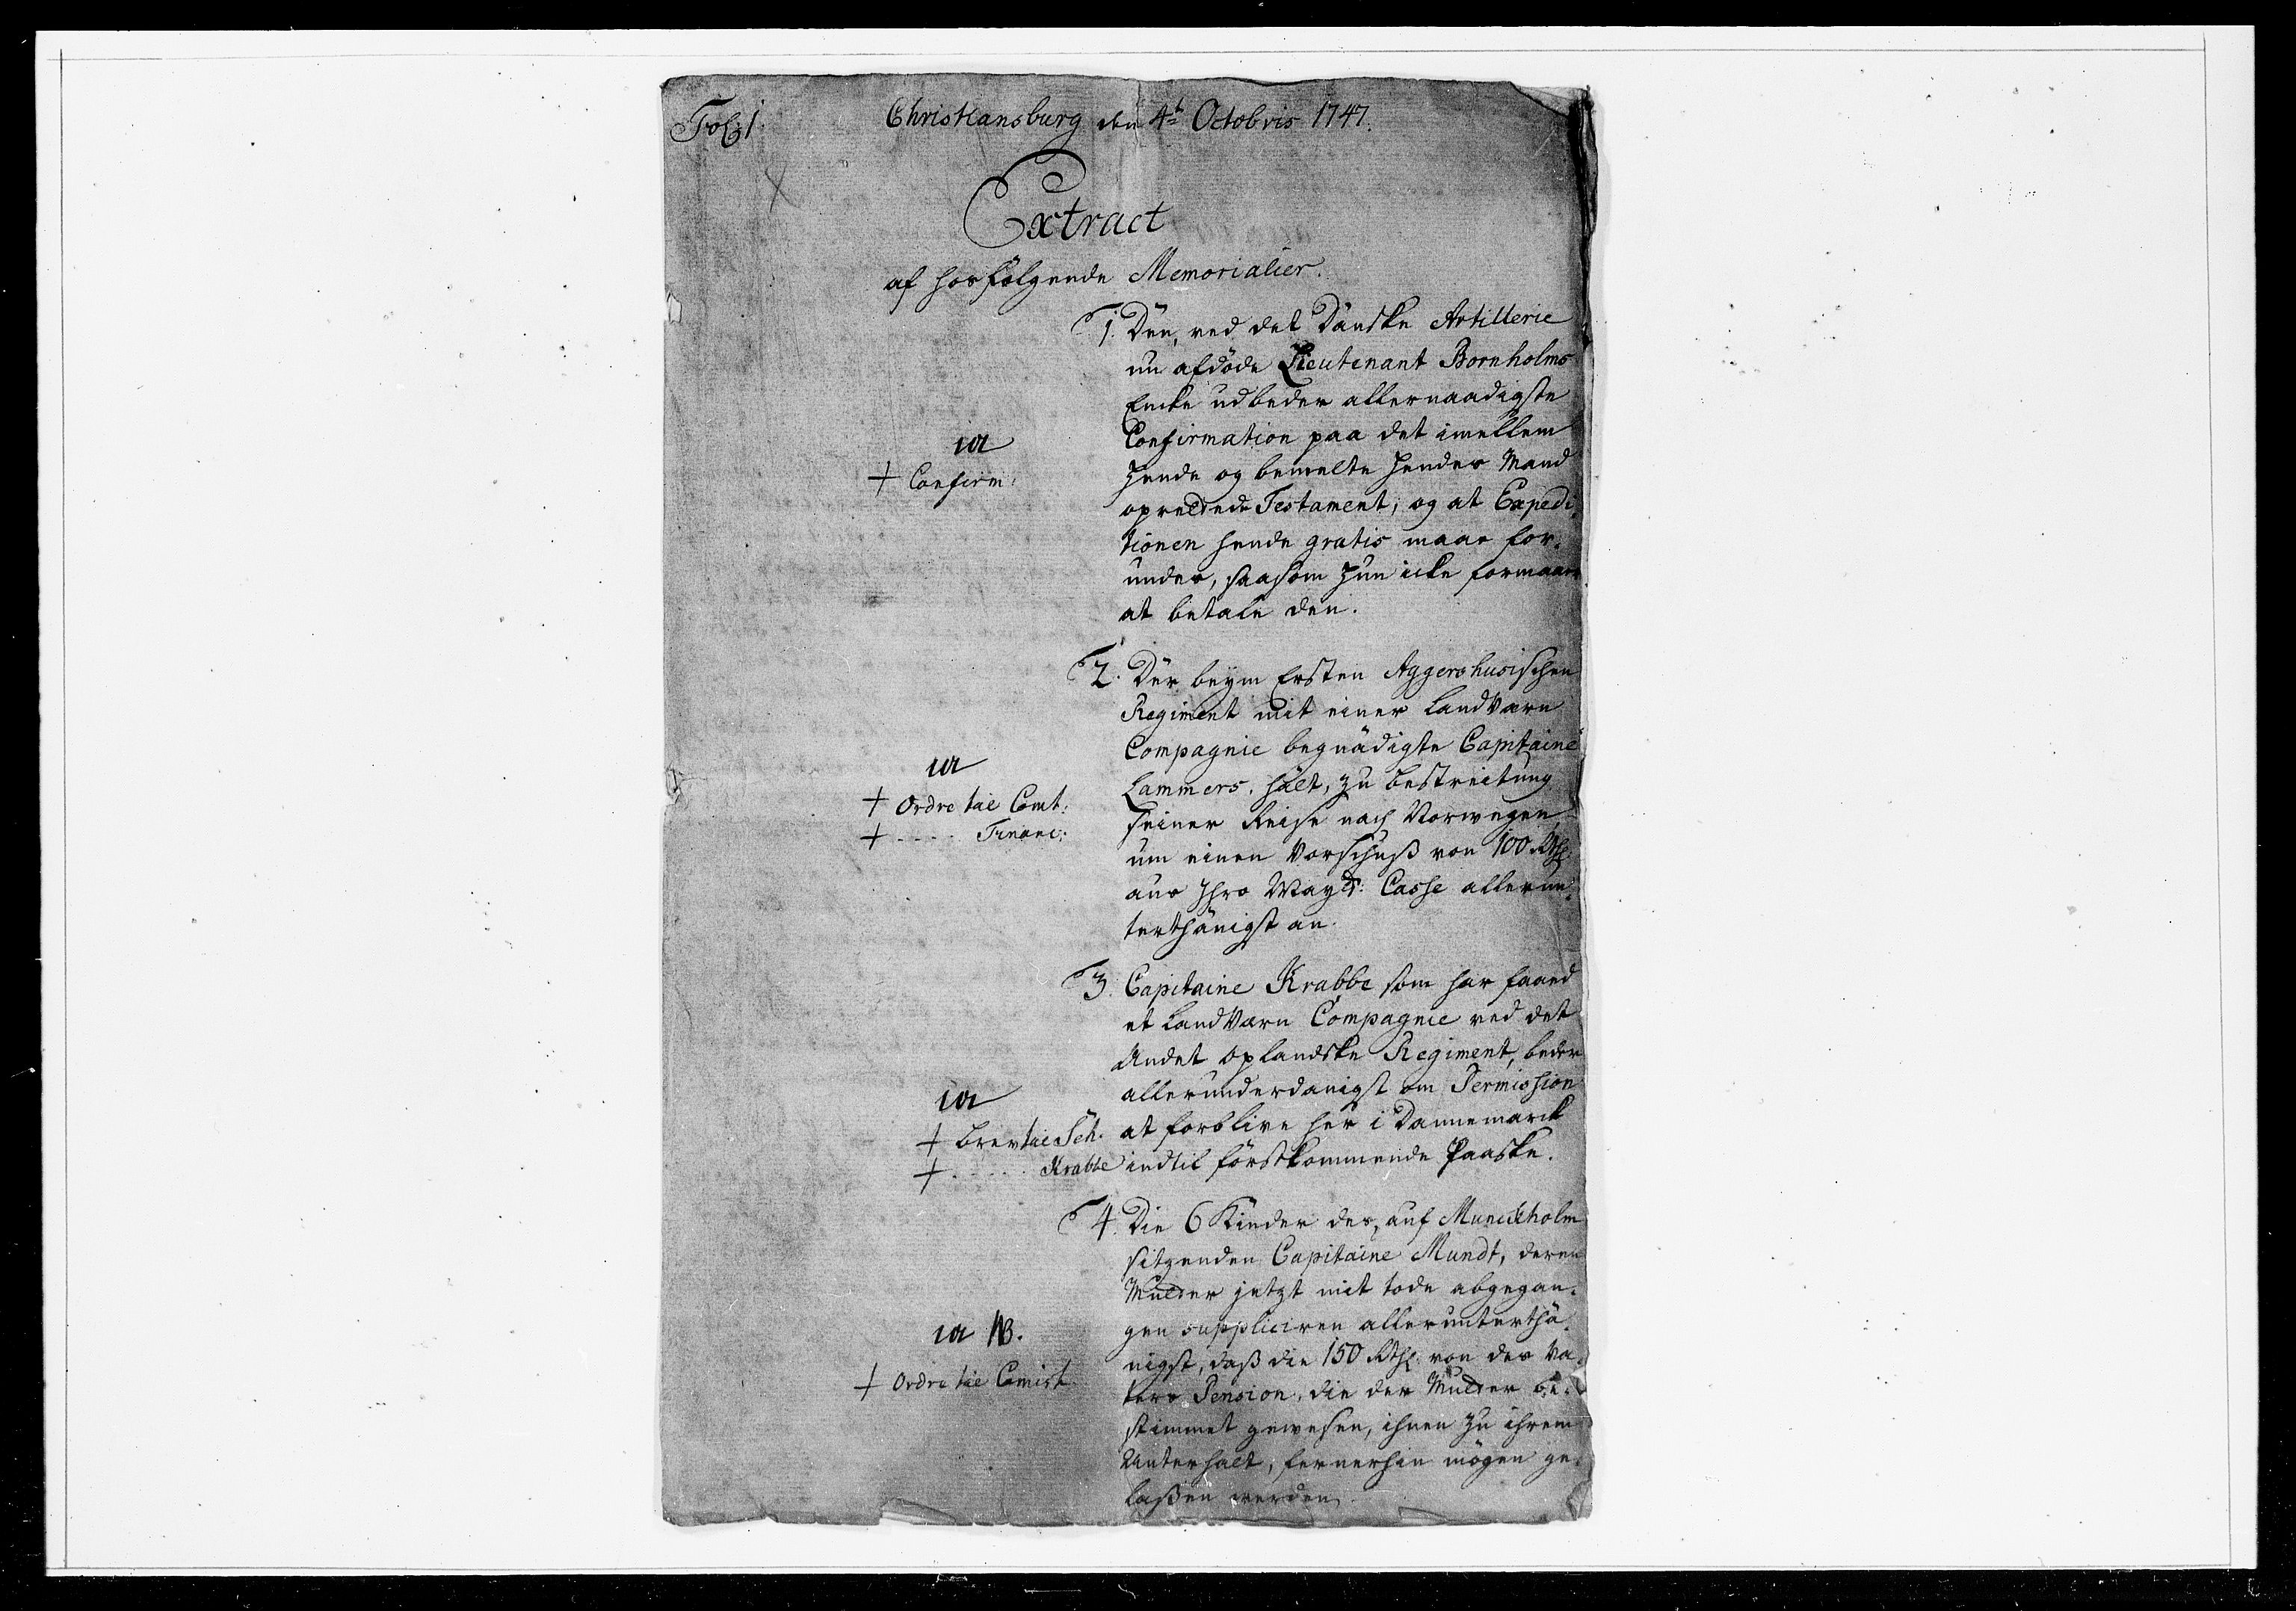 Fol: 1.
Christiansburg den 4t Octobris 1747.
Extract
af hosfølgende Memorialier.
1. Den, ved det Danske Artillerie
nu afdøde Lieutenant Bornholms
Encke udbeder allernaadigste
Confirmation paa det imellem
Hende og bemelte Hendes Mand
oprettede Testament, og at Expedi-
tionen hende gratis maae for-
undes, saasom Hun icke formaaer
at betale den.
ia
+ Confirm:
2. Der beym Ersten Aggershusischen
Regiment mit einer Landværn
Compagnie begnädigte Capitaine
Lammers, hält, zu bestreitung
seiner Reise nach Norwegen
um einen Vorschuß von 100 Rthl.
aus Ihro Mayt: Casse allerun-
terthänigst an.
ia
+ Ordre tie Comt:
+ ---- Financ:
3. Capitaine Krabbe som har faaed
et Landværn Compagnie ved det
Andet Oplandske Regiment, beder
allerunderdanigst om Permission
at forblive her i Dannemarck
indtil førstkommende Paaske.
ia
+ Brev tie Sch.
+ ----- Krabbe
4. Die 6 Kinder des, auf Munckholm
sitzenden Capitaine Mundt, deren
Mutter jetzt mit tode abgegan-
gen suppliciren allerunterthä-
nigst, daß die 150 Rthl. von des Va-
ters Pension, die der Mutter be-
stimmet gewesen, ihnen zu ihrem
Unterhalt, fernerhin mögen ge-
laßen werden.
ia NB.
+ Ordre tie Comist